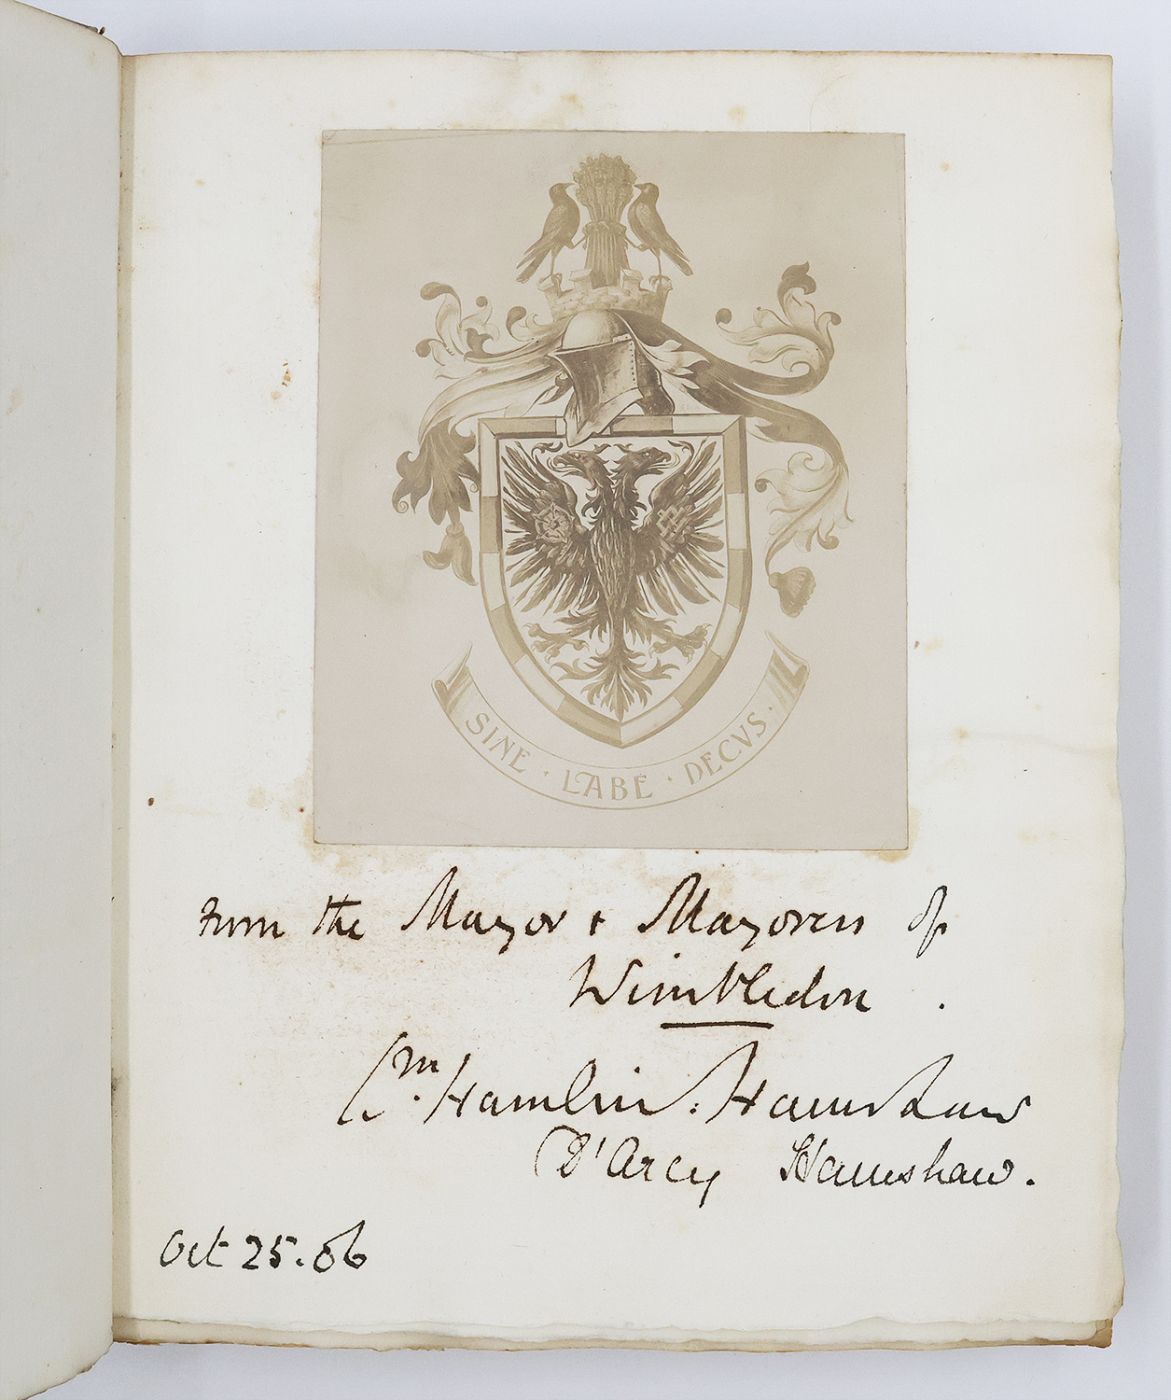 SINE · LABE · DECVS ·
From the Mayor & Mayoress of
Wimbledon .
Wm. Hamlin : Hamshaw
D'Arcy Hamshaw.
Oct 25.06